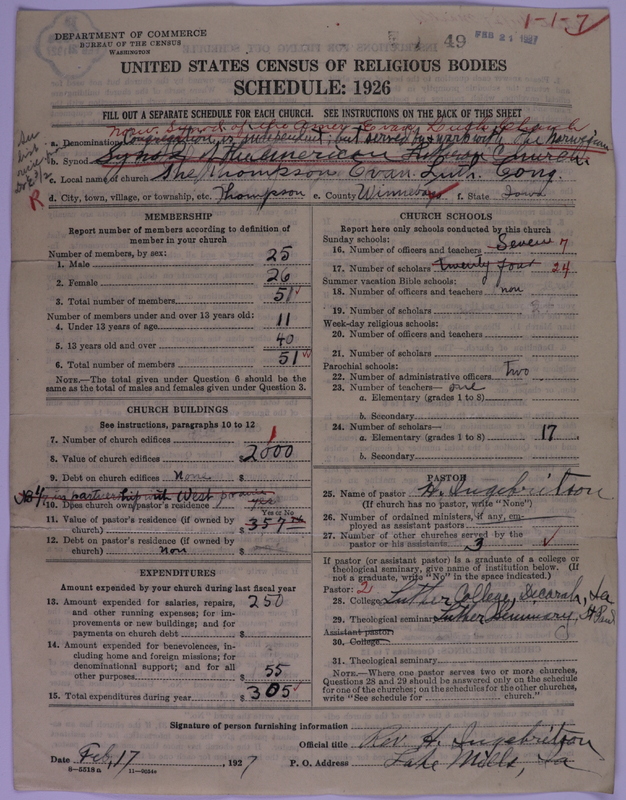 DEPARTMENT OF COMMERCE
BUREAU OF THE CENSUS
WASHINGTON
49
FEB 21 1927
1-1-7
UNITED STATES CENSUS OF RELIGIOUS BODIES
SCHEDULE: 1926
FILL OUT A SEPARATE SCHEDULE FOR EACH CHURCH. SEE INSTRUCTIONS ON THE BACK OF THIS SHEET
Now: Synod of the Evan. Luth. Church
a. Denomination Congregation is independent; but served by & work with the Norwegian
b. Synod Synod of the American Luth. Church
c. Local name of church The Thompson Evan. Luth. Cong.
R
d. City, town, village, or township, etc. Thompson e. County Winnebago f. State Iowa
MEMBERSHIP
Report number of members according to definition of member in your church
Number of members, by sex:
1. Male 25
2. Female 26
3. Total number of members 51
Number of members under and over 13 years old:
4. Under 13 years of age 11
5. 13 years old and over 40
6. Total number of members 51
NOTE.—The total given under Question 6 should be the same as the total of males and females given under Question 3.
CHURCH BUILDINGS
See instructions, paragraphs 10 to 12
7. Number of church edifices 1
8. Value of church edifices $ 2000
9. Debt on church edifices None $
in partnership with West
10. Does church own pastor's residence yes
Yes or No
11. Value of pastor's residence (if owned by church) $ 357
12. Debt on pastor's residence (if owned by church) none $
EXPENDITURES
Amount expended by your church during last fiscal year
13. Amount expended for salaries, repairs, and other running expenses; for improvements or new buildings; and for payments on church debt $ 250
14. Amount expended for benevolences, including home and foreign missions; for denominational support; and for all other purposes $ 55
15. Total expenditures during year $ 305
CHURCH SCHOOLS
Report here only schools conducted by this church
Sunday schools:
16. Number of officers and teachers Seven 7
17. Number of scholars twenty four 24
Summer vacation Bible schools:
18. Number of officers and teachers non
19. Number of scholars
Week-day religious schools:
20. Number of officers and teachers
21. Number of scholars
Parochial schools:
22. Number of administrative officers two
23. Number of teachers— one
a. Elementary (grades 1 to 8)
b. Secondary
24. Number of scholars—
a. Elementary (grades 1 to 8) 17
b. Secondary
PASTOR
25. Name of pastor H. Ingebritson
(If church has no pastor, write "None")
26. Number of ordained ministers, if any, employed as assistant pastors
27. Number of other churches served by the pastor or his assistants 3
If pastor (or assistant pastor) is a graduate of a college or theological seminary, give name of institution below. (If not a graduate, write "No" in the space indicated.)
Pastor: 2
28. College Luther College, Decorah, Ia
29. Theological seminary Luther Seminary, St Paul
Assistant pastor
30. College
31. Theological seminary
NOTE.—Where one pastor serves two or more churches, Questions 28 and 29 should be answered only on the schedule for one of the churches; on the schedules for the other churches, write "See schedule for ______ church."
Signature of person furnishing information
Official title Rev. H. Ingebritson
Date Feb, 17, 1927 P. O. Address Lake Mills, Ia
8—5518a 11—9054